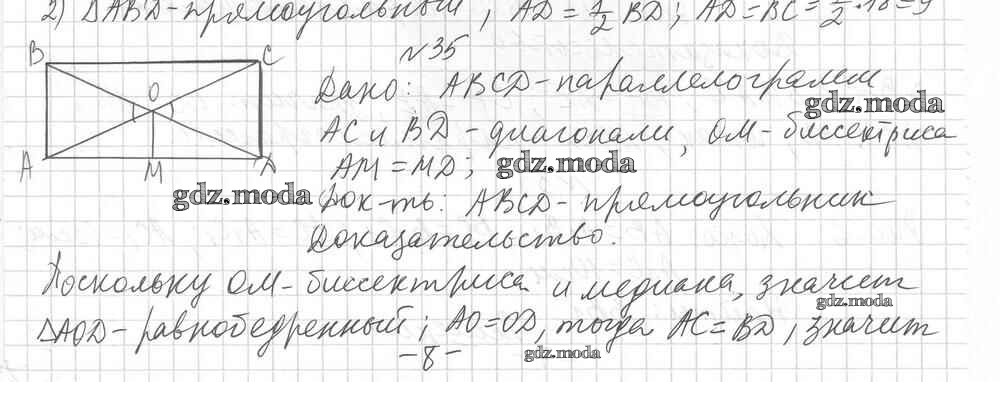 2) ΔABD-прямоугольный, AD = 1/2 BD; AD = BC = 1/2 · 18 = 9
№35
B C
O
A M D
Дано: ABCD-параллелограмм
gdz.moda
AC и BD - диагонали, OM-биссектриса
AM = MD;
gdz.moda
gdz.moda
Док-ть: ABCD-прямоугольник
Доказательство.
Поскольку OM-биссектриса и медиана, значит
gdz.moda
ΔAOD-равнобедренный; AO=OD, тогда AC=BD, значит
-8-
gdz.moda